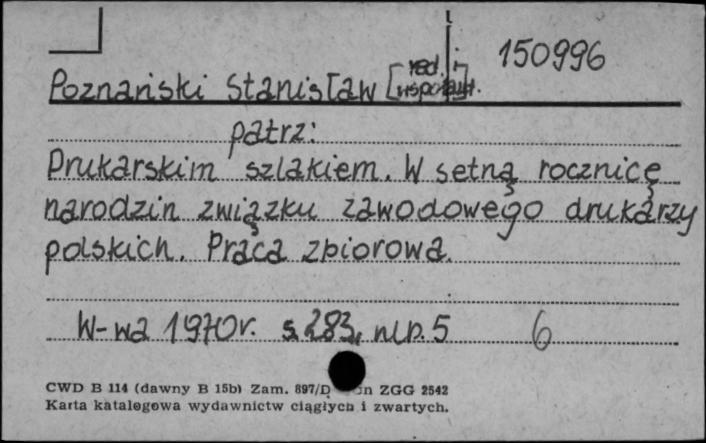 150996
Poznański Stanisław [red. i współaut.
patrz:
Drukarskim szlakiem. W setną rocznicę
narodzin związku zawodowego drukarzy
polskich. Praca zbiorowa.
W-wa 1970r. s. 283, nlp. 5 6
CWD B 114 (dawny B 15b) Zam. 897/D n ZGG 2542
Karta katalogowa wydawnictw ciągłych i zwartych.